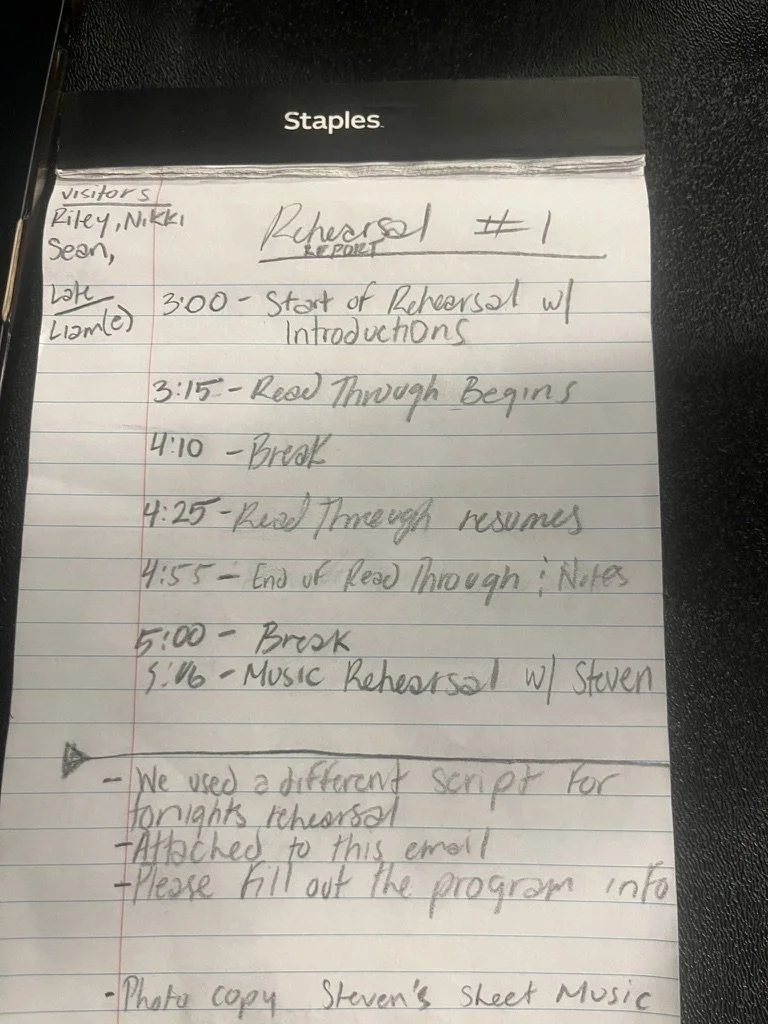 Staples
visitors
Riley, Nikki
Sean,
Rehearsal #1
REPORT
Late
Liam(e)
3:00 - Start of Rehearsal w/
Introductions
3:15 - Read Through Begins
4:10 - Break
4:25 - Read Through resumes
4:55 - End of Read Through : Notes
5:00 - Break
5:06 - Music Rehearsal w/ Steven
- We used a different script for
tonights rehearsal
- Attached to this email
- Please fill out the program info
- Photo copy Steven's Sheet Music